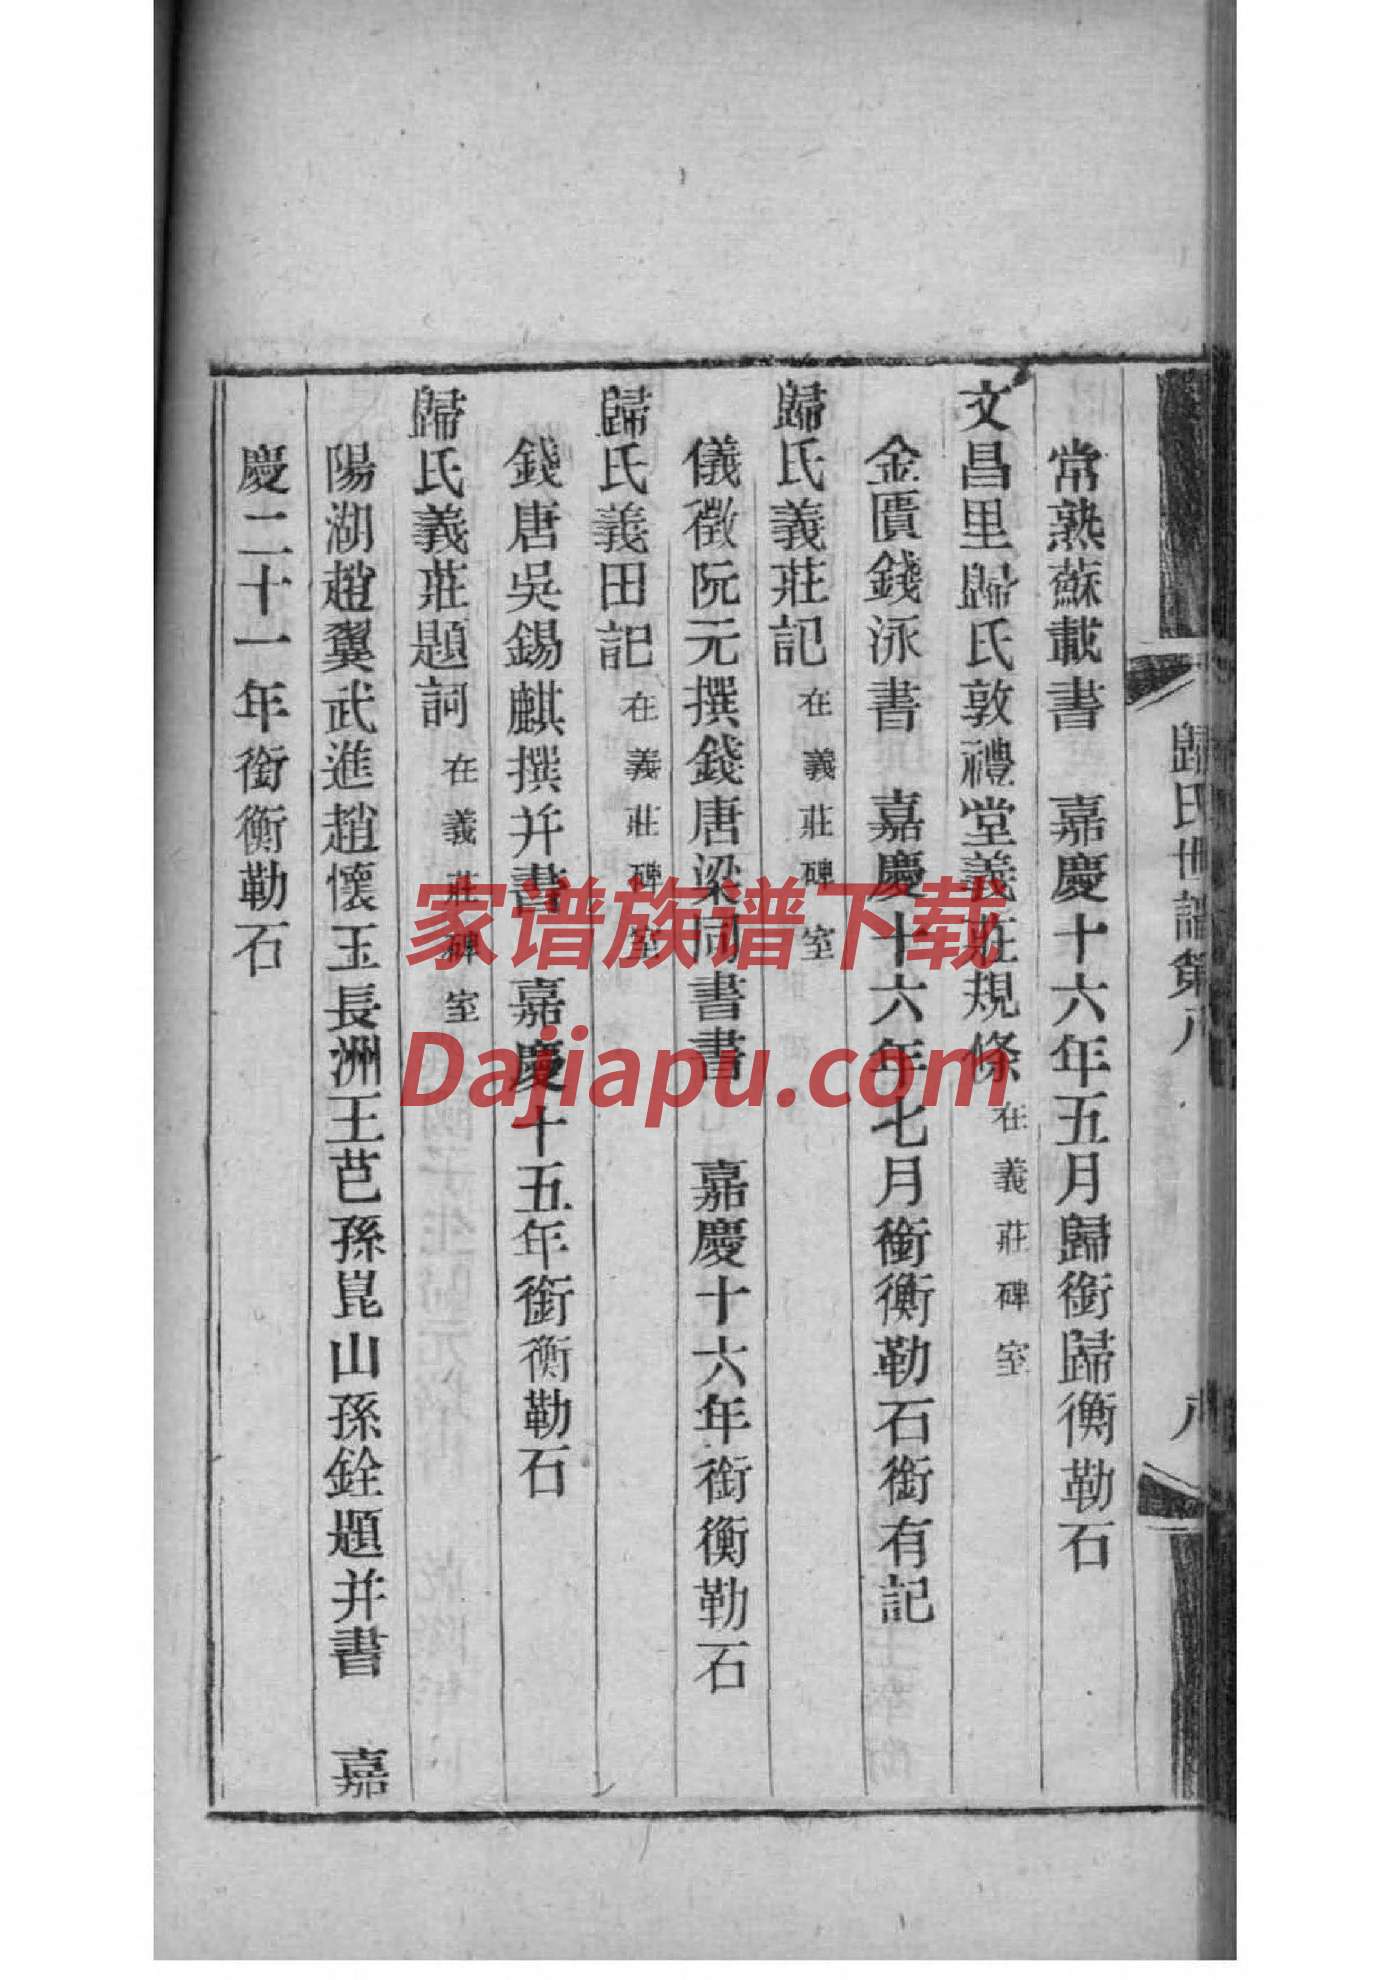 歸氏世譜第八
八
常熟蘇載書　嘉慶十六年五月歸銜歸衡勒石
文昌里歸氏敦禮堂義莊規條在義莊碑室
金匱錢泳書　嘉慶十六年七月銜衡勒石銜有記
歸氏義莊記在義莊碑室
儀徵阮元撰錢唐梁同書書　嘉慶十六年銜衡勒石
歸氏義田記在義莊碑室
錢唐吳錫麒撰并書　嘉慶十五年銜衡勒石
歸氏義莊題詞在義莊碑室
陽湖趙翼武進趙懷玉長洲王芑孫崑山孫銓題并書　嘉
慶二十一年銜衡勒石
家谱族谱下载
Dajiapu.com